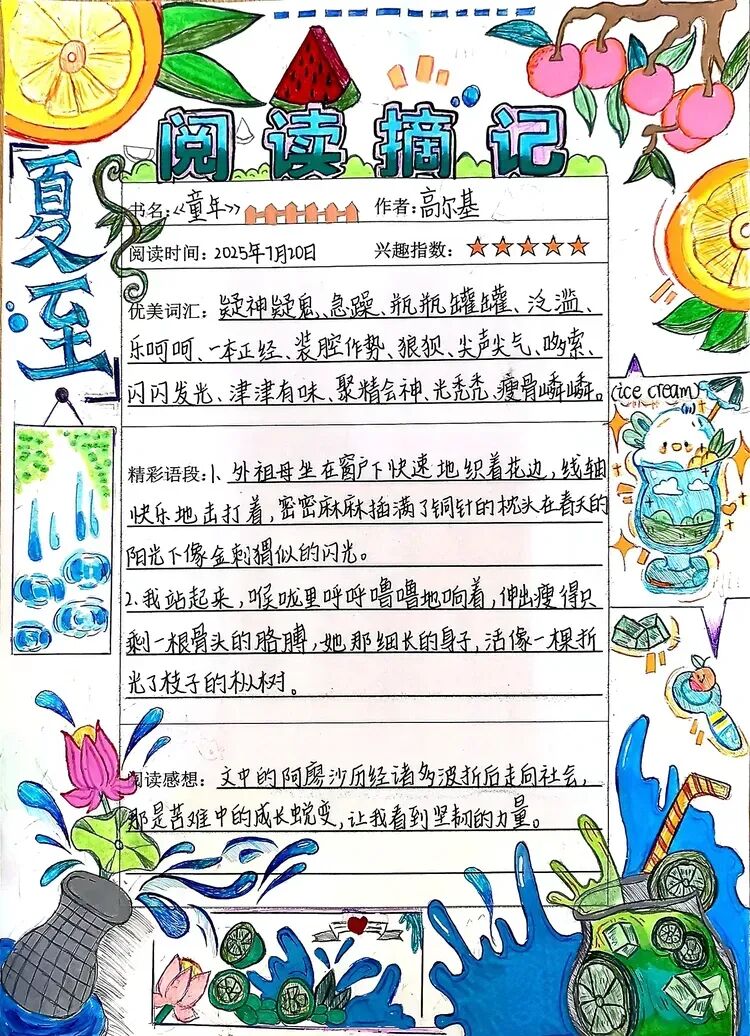 阅读摘记
夏至
书名:《童年》 作者:高尔基
阅读时间:2025年7月20日 兴趣指数:★★★★★
优美词汇:疑神疑鬼、急躁、瓶瓶罐罐、泛滥、
乐呵呵、一本正经、装腔作势、狼狈、尖声尖气、哆索、
闪闪发光、津津有味、聚精会神、光秃秃、瘦骨嶙嶙。
(ice cream)
精彩语段:1、外祖母坐在窗户下快速地织着花边,线轴
快乐地击打着,密密麻麻插满了铜针的枕头在春天的
阳光下像金刺猬似的闪光。
2.我站起来,喉咙里呼呼噜噜地响着,伸出瘦得只
剩一根骨头的胳膊,她那细长的身子,活像一棵折
光了枝子的枞树。
阅读感想:文中的阿廖沙历经诸多波折后走向社会,
那是苦难中的成长蜕变,让我看到坚韧的力量。